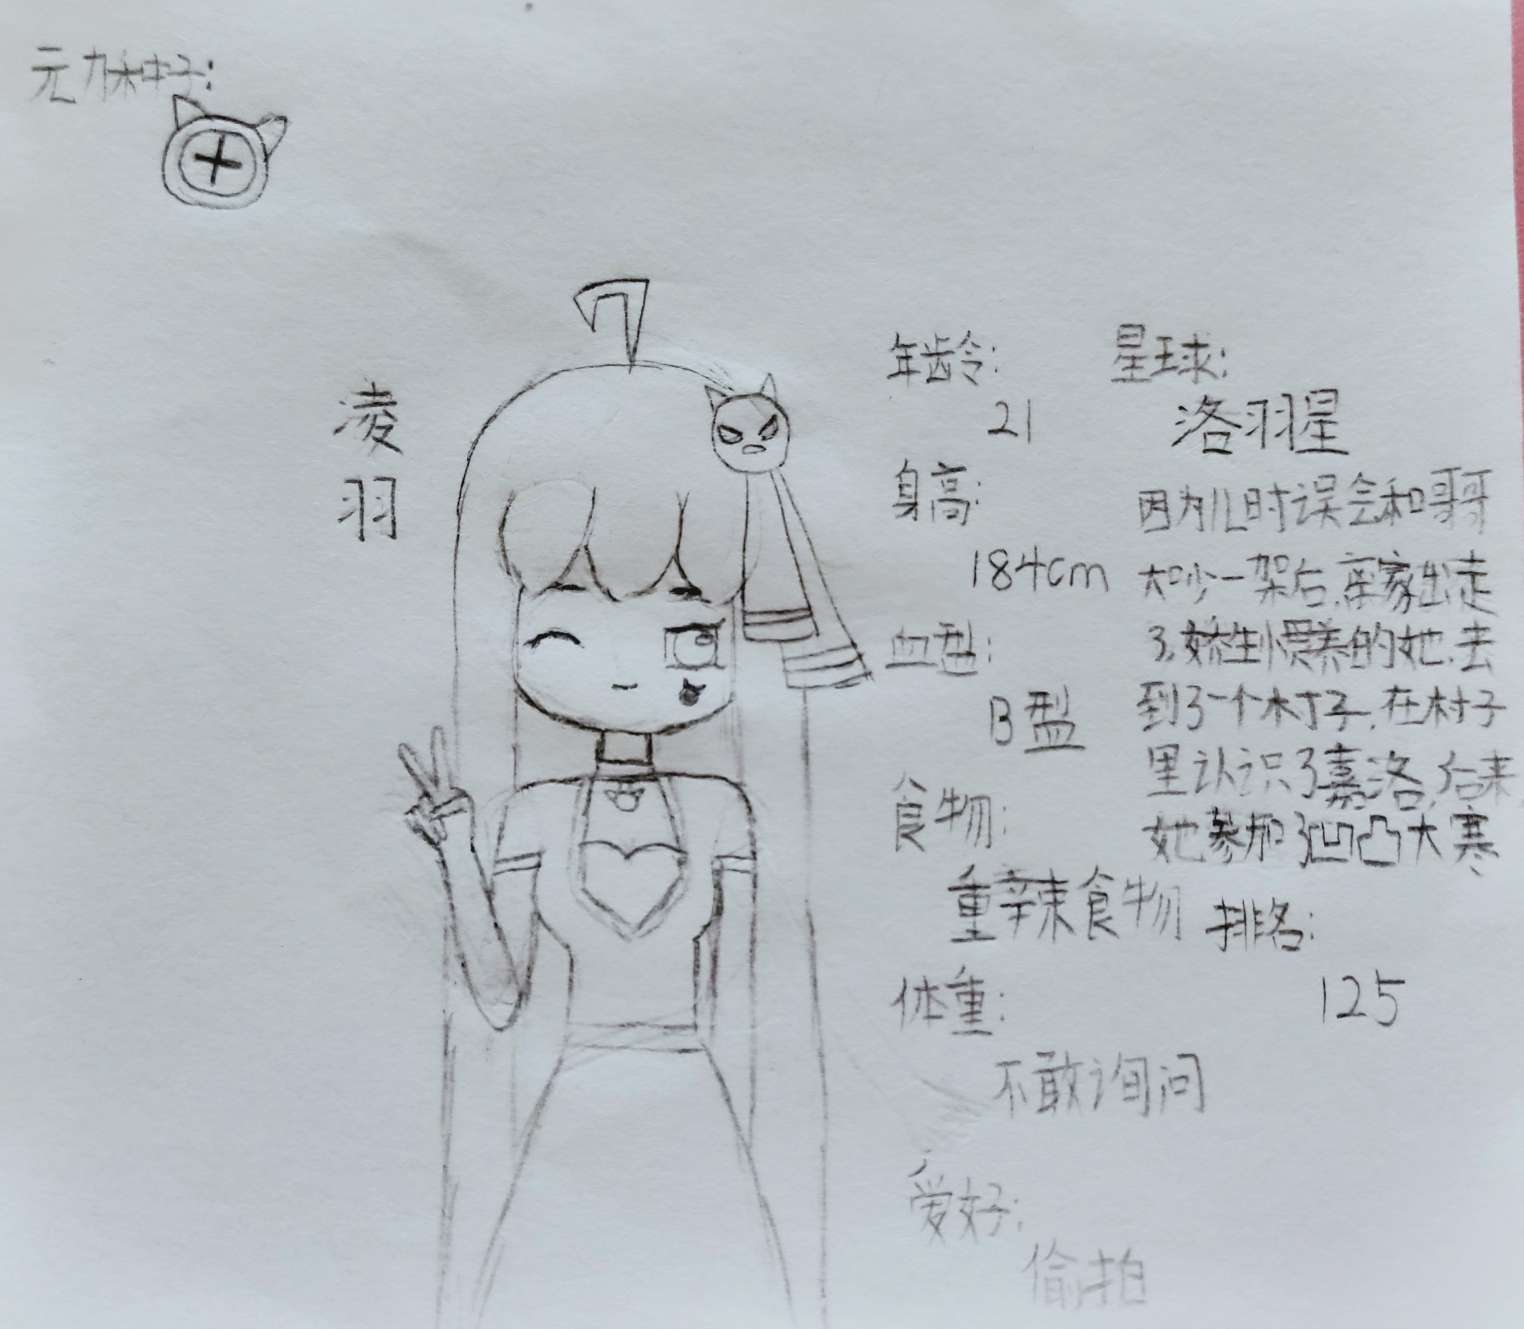 元力种子:
凌
羽
年龄:
21
身高:
184cm
血型:
B型
食物:
重辣食物
体重:
不敢询问
爱好:
偷拍
星球:
洛羽星
因为儿时误会和哥哥
大吵一架后,离家出走
了,娇生惯养的她,去
到了一个村子,在村子
里认识了嘉洛,后来,
她参加了凹凸大赛
排名:
125